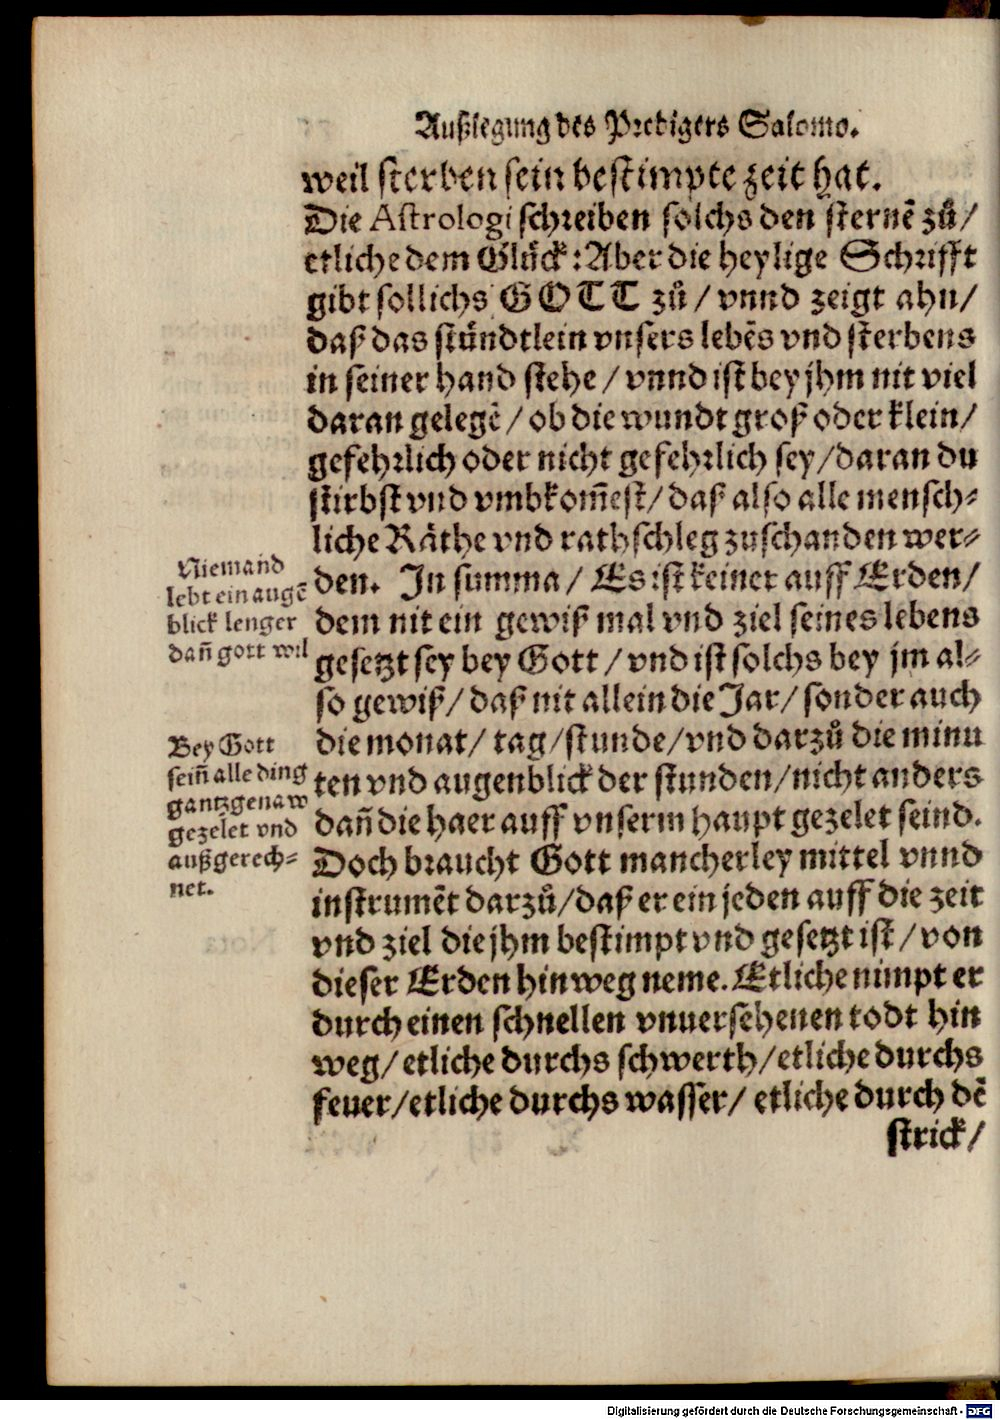 Außlegung des Predigers Salomo.
weil sterben sein bestimpte zeit hat.
Die Astrologi schreiben solchs den sternẽ zů/
etliche dem Glück: Aber die heylige Schrifft
gibt sollichs GOTT zů/ vnnd zeigt ahn/
daß das stündtlein vnsers lebẽs vnd sterbens
in seiner hand stehe/ vnnd ist bey jhm nit viel
daran gelegẽ/ ob die wundt groß oder klein/
gefehrlich oder nicht gefehrlich sey/ daran du
stirbst vnd vmbkom̃est/ daß also alle mensch⸗
liche Räthe vnd rathschleg zuschanden wer⸗
den. In summa/ Es ist keiner auff Erden/
dem nit ein gewiß mal vnd ziel seines lebens
gesetzt sey bey Gott/ vnd ist solchs bey jm al⸗
so gewiß/ daß nit allein die Jar/ sonder auch
die monat/ tag/ stunde/ vnd darzů die minu
ten vnd augenblick der stunden/ nicht anders
dañ die haer auff vnserm haupt gezelet seind.
Doch braucht Gott mancherley mittel vnnd
instrumẽt darzů/ daß er ein jeden auff die zeit
vnd ziel die jhm bestimpt vnd gesetzt ist/ von
dieser Erden hinweg neme. Etliche nimpt er
durch einen schnellen vnuersehenen todt hin
weg/ etliche durchs schwerth/ etliche durchs
feuer/ etliche durchs wasser/ etliche durch dẽ
strick/
Niemand
lebt ein augẽ
blick lenger
dañ gott wil
Bey Gott
seiñ alle ding
gantz genaw
gezelet vnd
außgerech⸗
net.
Digitalisierung gefördert durch die Deutsche Forschungsgemeinschaft - DFG